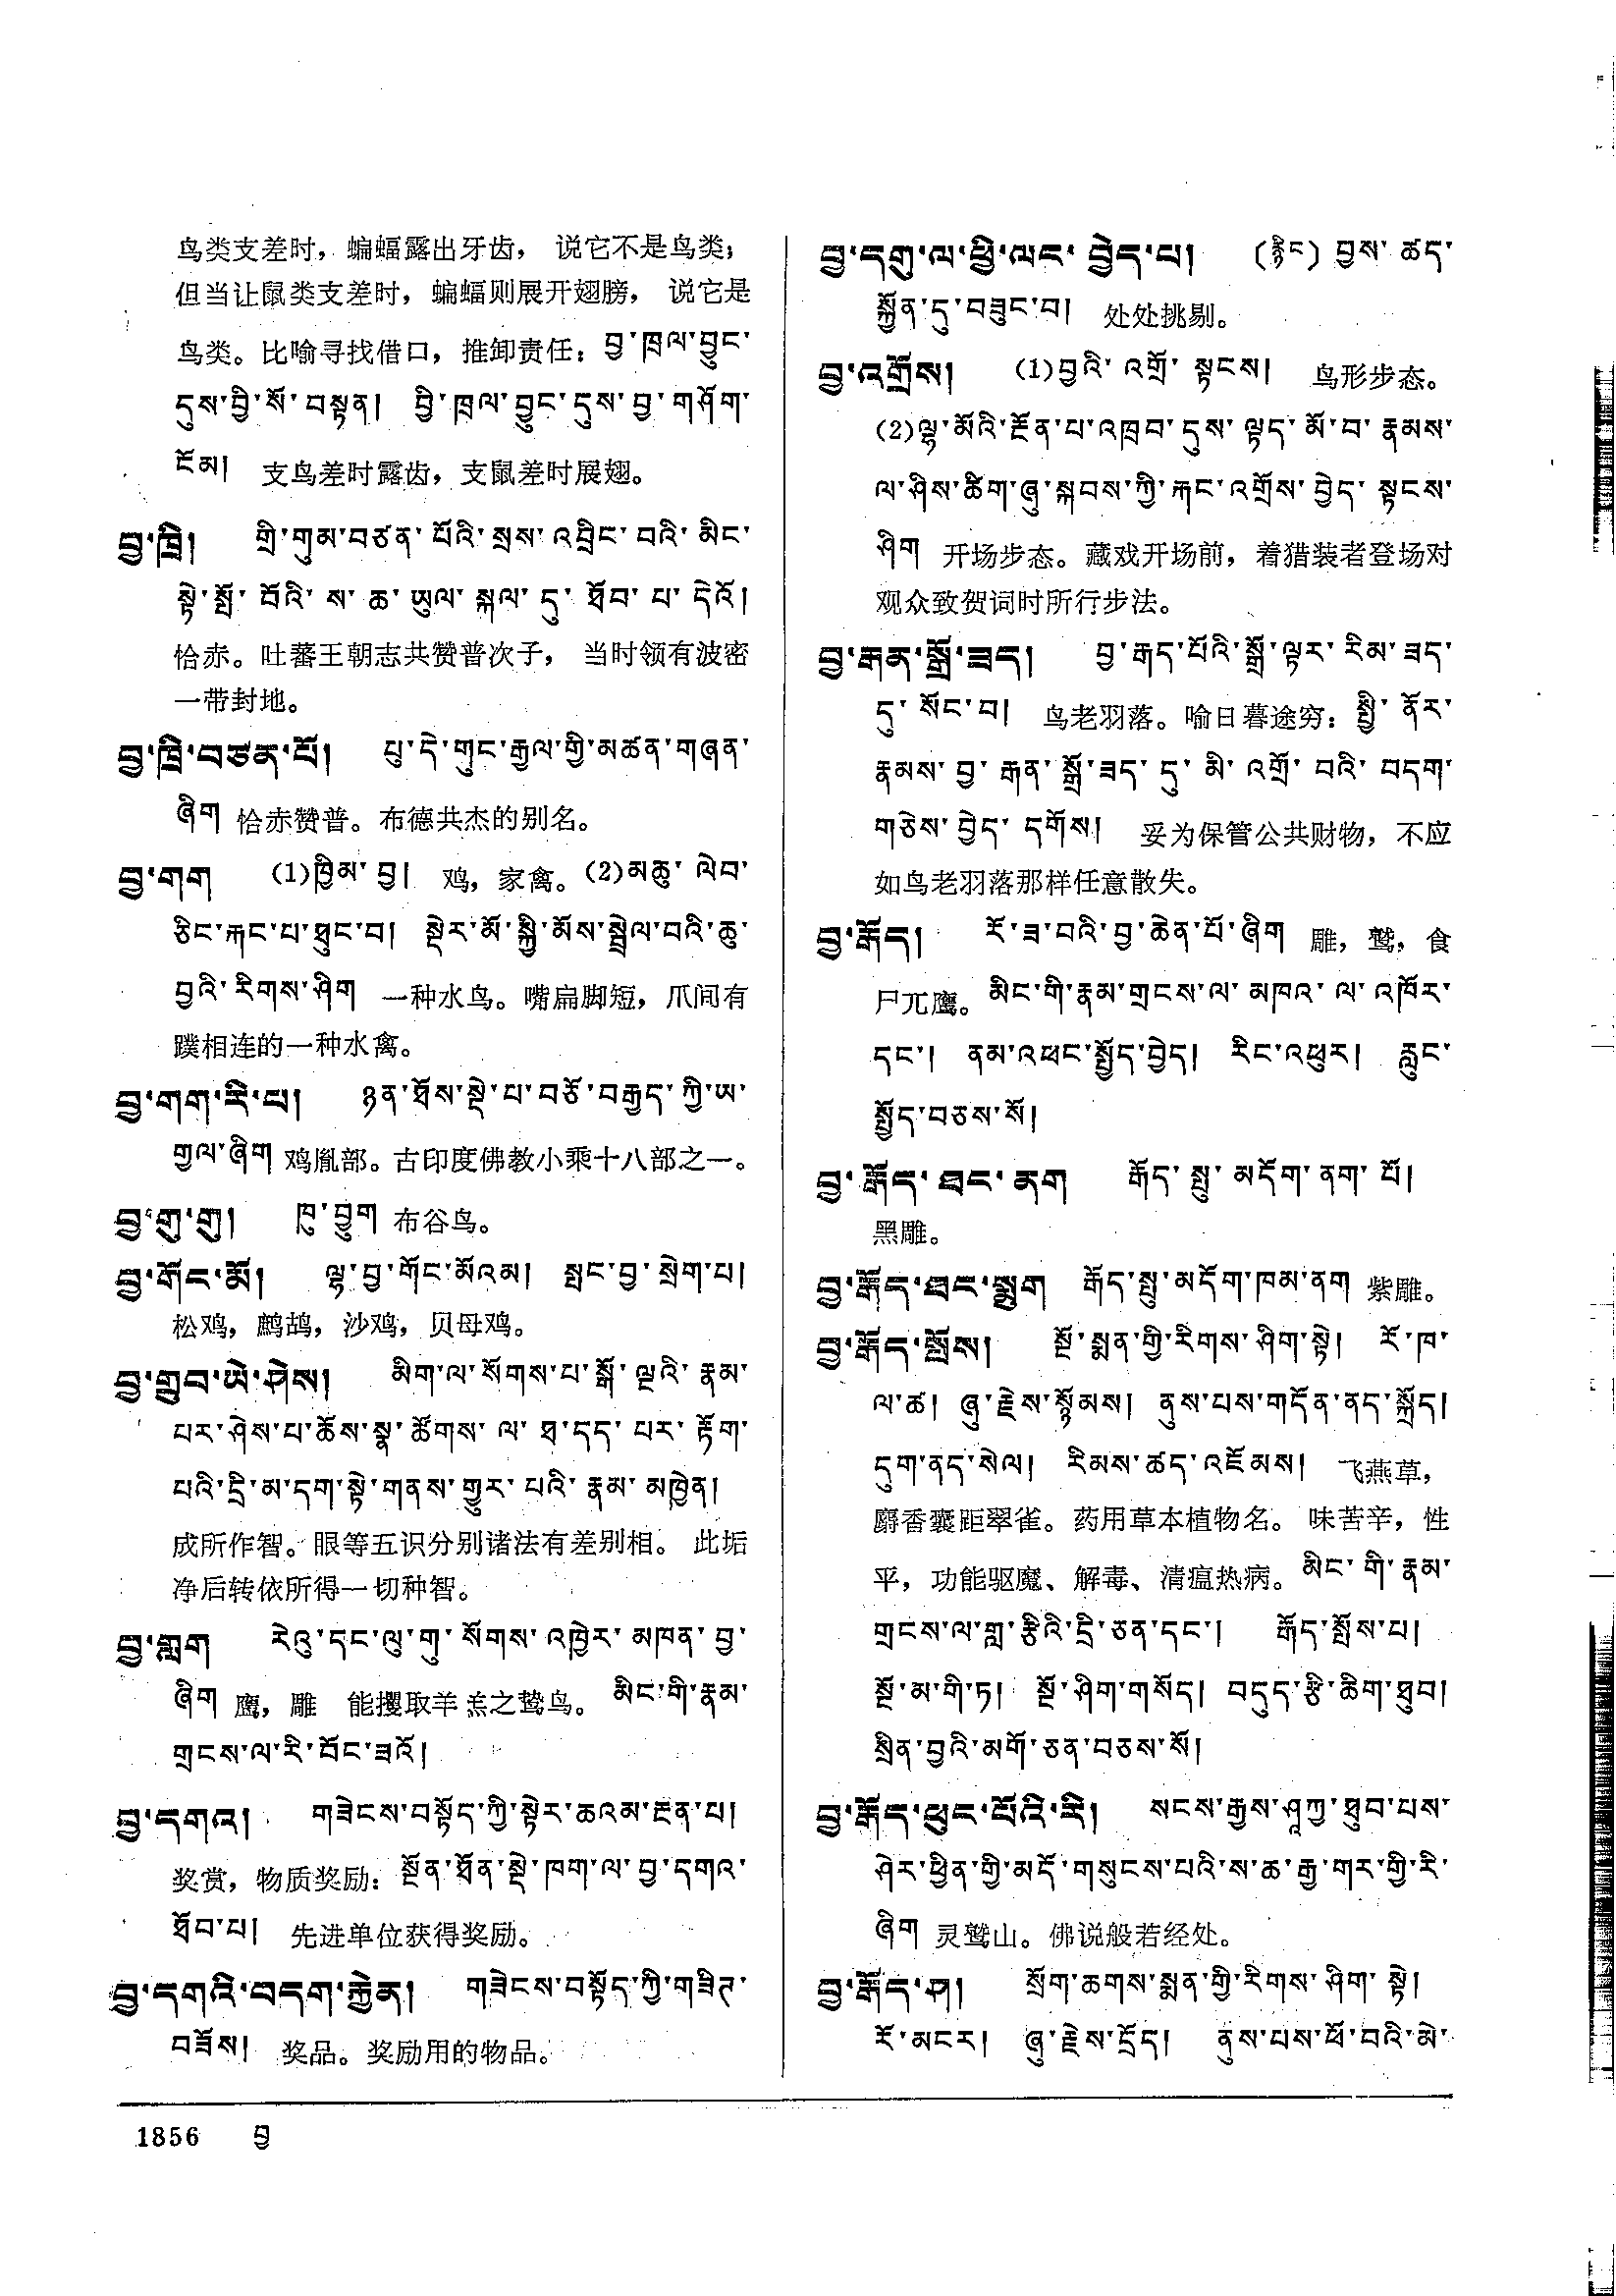 鸟类支差时，蝙蝠露出牙齿， 说它不是鸟类；
但当让鼠类支差时，蝙蝠则展开翅膀， 说它是
鸟类。比喻寻找借口，推卸责任：བྱ་ཁྲལ་བྱུང་
དུས་བྱི་སོ་བསྟན། བྱི་ཁྲལ་བྱུང་དུས་བྱ་གཤོག་
ངོམ། 支鸟差时露齿，支鼠差时展翅。
བྱ་ཁྲི། གྲི་གུམ་བཙན་པོའི་སྲས་འབྲིང་བའི་མིང་
སྟེ་སྤོ་བོའི་ས་ཆ་ཡུལ་སྐལ་དུ་ཐོབ་པ་དེའོ།
恰赤。吐蕃王朝志共赞普次子， 当时领有波密
一带封地。
བྱ་ཁྲི་བཙན་པོ། པུ་དེ་གུང་རྒྱལ་གྱི་མཚན་གཞན་
ཞིག 恰赤赞普。布德共杰的别名。
བྱ་གག (1)ཁྱིམ་བྱ། 鸡，家禽。(2)མཆུ་ལེབ་
ཅིང་རྐང་པ་ཐུང་བ། སྡེར་མོ་སྐྱི་མོས་སྦྲེལ་བའི་ཆུ་
བྱའི་རིགས་ཤིག 一种水鸟。嘴扁脚短，爪间有
蹼相连的一种水禽。
བྱ་གག་རི་པ། ཉན་ཐོས་སྡེ་པ་བཅོ་བརྒྱད་ཀྱི་ཡ་
གྱལ་ཞིག 鸡胤部。古印度佛教小乘十八部之一。
བྱ་གུ་གུ། ཁུ་བྱུག 布谷鸟。
བྱ་གོང་མོ། ལྷ་བྱ་གོང་མོའམ། སྤང་བྱ་སྲེག་པ།
松鸡，鹧鸪，沙鸡，贝母鸡。
བྱ་གྲུབ་ཡེ་ཤེས། མིག་ལ་སོགས་པ་སྒོ་ལྔའི་རྣམ་
པར་ཤེས་པ་ཆོས་སྣ་ཚོགས་ལ་ཐ་དད་པར་རྟོག་
པའི་དྲི་མ་དག་སྟེ་གནས་གྱུར་པའི་རྣམ་མཁྱེན།
成所作智。眼等五识分别诸法有差别相。 此垢
净后转依所得一切种智。
བྱ་གླག རེའུ་དང་ལུ་གུ་སོགས་འཁྱེར་མཁན་བྱ་
ཞིག 鹰，雕 能攫取羊羔之鸷鸟。 མིང་གི་རྣམ་
གྲངས་ལ་རི་བོང་ཟའོ།
བྱ་དགའ། གཟེངས་བསྟོད་ཀྱི་སྟེར་ཆའམ་རྔན་པ།
奖赏，物质奖励：སྔོན་ཐོན་སྡེ་ཁག་ལ་བྱ་དགའ་
ཐོབ་པ། 先进单位获得奖励。
བྱ་དགའི་བདག་རྐྱེན། གཟེངས་བསྟོད་ཀྱི་གཟིད་
བཟོས། 奖品。奖励用的物品。
བྱ་དགུ་ལ་ཕྱི་ལང་བྱེད་པ། (རྙིང) བྱས་ཚད་
སྐྱོན་དུ་བཟུང་བ། 处处挑剔。
བྱ་འགྲོས། (1)བྱའི་འགྲོ་སྟངས། 鸟形步态。
(2)ལྷ་མོའི་རྔོན་པ་འཁྲབ་དུས་ལྟད་མོ་བ་རྣམས་
ལ་ཤིས་ཚིག་ཞུ་སྐབས་ཀྱི་རྐང་འགྲོས་བྱེད་སྟངས་
ཤིག 开场步态。藏戏开场前，着猎装者登场对
观众致贺词时所行步法。
བྱ་རྒན་སྒྲོ་ཟད། བྱ་རྒད་པོའི་སྒྲོ་ལྟར་རིམ་ཟད་
དུ་སོང་བ། 鸟老羽落。喻日暮途穷：སྤྱི་ནོར་
རྣམས་བྱ་རྒན་སྒྲོ་ཟད་དུ་མི་འགྲོ་བའི་བདག་
གཅེས་བྱེད་དགོས། 妥为保管公共财物，不应
如鸟老羽落那样任意散失。
བྱ་རྒོད། རོ་ཟ་བའི་བྱ་ཆེན་པོ་ཞིག 雕，鹫，食
尸兀鹰。མིང་གི་རྣམ་གྲངས་ལ་མཁའ་ལ་འཁོར་
དང་། ནམ་འཕང་སྤྱོད་བྱེད། རིང་འཕུར། རླུང་
སྤྱོད་བཅས་སོ།
བྱ་རྒོད་ཐང་ནག རྒོད་སྤུ་མདོག་ནག་པོ།
黑雕。
བྱ་རྒོད་ཐང་སྨུག རྒོད་སྤུ་མདོག་ཁམ་ནག 紫雕。
བྱ་རྒོད་སྤོས། སྔོ་སྨན་གྱི་རིགས་ཤིག་སྟེ། རོ་ཁ་
ལ་ཚ། ཞུ་རྗེས་སྙོམས། ནུས་པས་གདོན་ནད་སྐྲོད།
དུག་ནད་སེལ། རིམས་ཚད་འཇོམས། 飞燕草，
麝香囊距翠雀。药用草本植物名。 味苦辛，性
平，功能驱魔、解毒、清瘟热病。མིང་གི་རྣམ་
གྲངས་ལ་གླ་རྩིའི་དྲི་ཅན་དང་། རྒོད་སྤོས་པ།
སྔོ་མ་གི་ཏ། སྔོ་ཤིག་གསོད། བདུད་རྩི་ཆིག་ཐུབ།
སྲིན་བྱའི་མགོ་ཅན་བཅས་སོ།
བྱ་རྒོད་ཕུང་པོའི་རི། སངས་རྒྱས་ཤཱཀྱ་ཐུབ་པས་
ཤེར་ཕྱིན་གྱི་མདོ་གསུངས་པའི་ས་ཆ་རྒྱ་གར་གྱི་རི་
ཞིག 灵鹫山。佛说般若经处。
བྱ་རྒོད་ཤ། སྲོག་ཆགས་སྨན་གྱི་རིགས་ཤིག་སྟེ།
རོ་མངར། ཞུ་རྗེས་དྲོད། ནུས་པས་ཕོ་བའི་མེ་
1856 བྱ